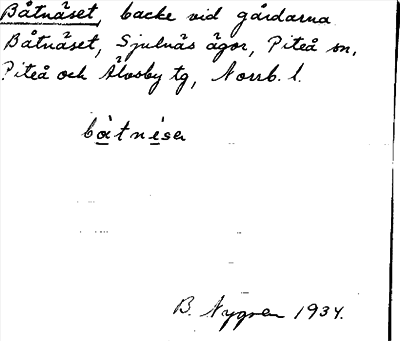 Båtnäset, backe vid gårdarna
Båtnäset, Sjulnäs ägor, Piteå sn,
Piteå och Älvsby tg, Norrb. l.
båtnesα
B. Nygren 1934.